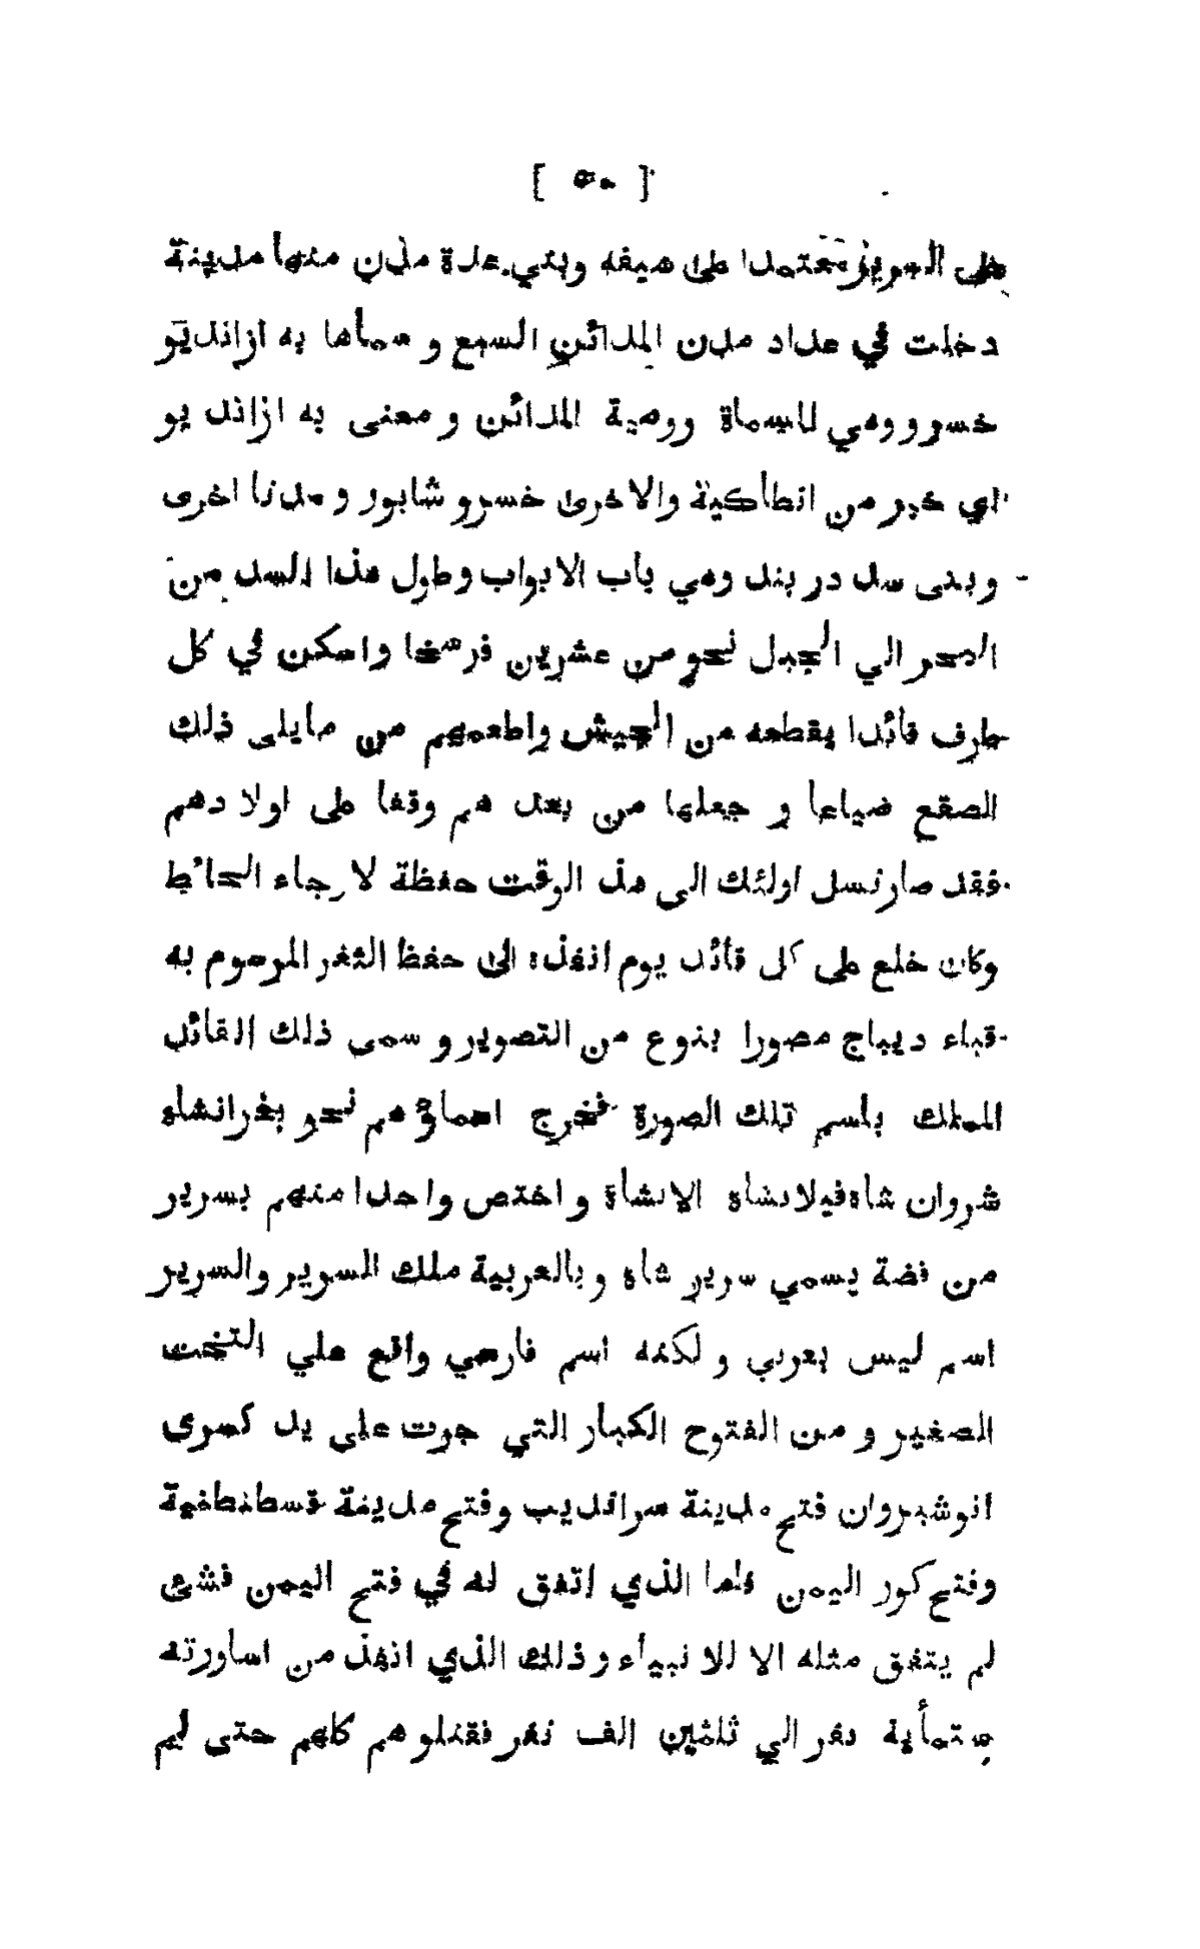 [ ٥٠ ]
على السرير معتمدا على سيفه وبني عدة مدن منها مدينة
دخلت في عداد مدن المدائن السبع و سماها به ازانديو
خسرو وهي المسماة رومية المدائن و معنى به ازاند يو
اي خير من انطاكية والاخرى خسرو شابور و مدنا اخرى
و بنى سد در بند وهي باب الابواب وطول هذا السد من
البحر الي الجبل نحو من عشرين فرسخا واسكن في كل
طرف قائدا يقطعه من الجيش واطعمهم من مايلى ذلك
الصقع ضياعا و جعلها من بعد هم وقفا على اولا دهم
فقد صار نسل اولئك الى هذ الوقت حفظة لا رجاء الحائط
وكان خلع على كل قائد يوم انفذه الى حفظ الثغر المرسوم به
قباء ديباج مصورا بنوع من التصوير و سمى ذلك القائد
الملك باسم تلك الصورة فخرج اسماؤ هم نحو بغرانشاه
شروان شاه فيلانشاه الانشاة و اختص واحدا منهم بسرير
من فضة يسمي سرير شاه و بالعربية ملك السرير والسرير
اسم ليس بعربي و لكنه اسم فارسي واقع علي التخت
الصغير و من الفتوح الكبار التي جرت على يد كسرى
انوشيروان فتح مدينة سرانديب وفتح مدينة قسطنطنية
وفتح كور اليمن فاما الذي اتفق له في فتح اليمن فشئ
لم يتفق مثله الا للا نبياء و ذلك الذي انفذ من اساورته
ستماية نفر الي ثلثين الف نفر فقتلو هم كلهم حتى لم